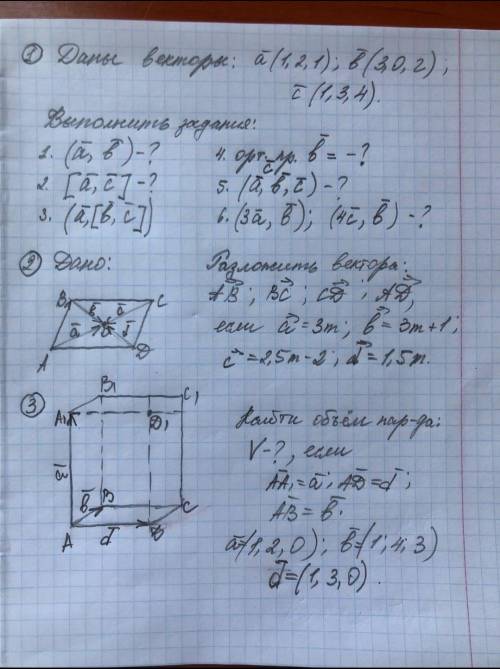 ① Даны векторы: a̅(1,2,1); b̅(3,0,2);
c̅(1,3,4).
Выполнить задания:
1. (a̅, b̅)-?
2. [a̅, c̅]-?
3. (a̅,[b̅, c̅])
4. орт. пр. c̅ b̅ = -?
5. (a̅, b̅, c̅)-?
6. (3a̅, b̅); (4c̅, b̅)-?
② Дано:
B C
A D
Разложить вектора:
AB; BC; CD; AD,
если a = 3m; b = 3m+1;
c = 2,5m-2; d = 1,5m.
③
B₁ C₁
A₁ D₁
a̅
b̅ B C
A d̅ D
Найти объём пар-да:
V-?, если
AA₁ = a̅; AD = d̅;
AB = b̅.
a̅=(1,2,0); b̅=(1;4;3)
d̅=(1,3,0).